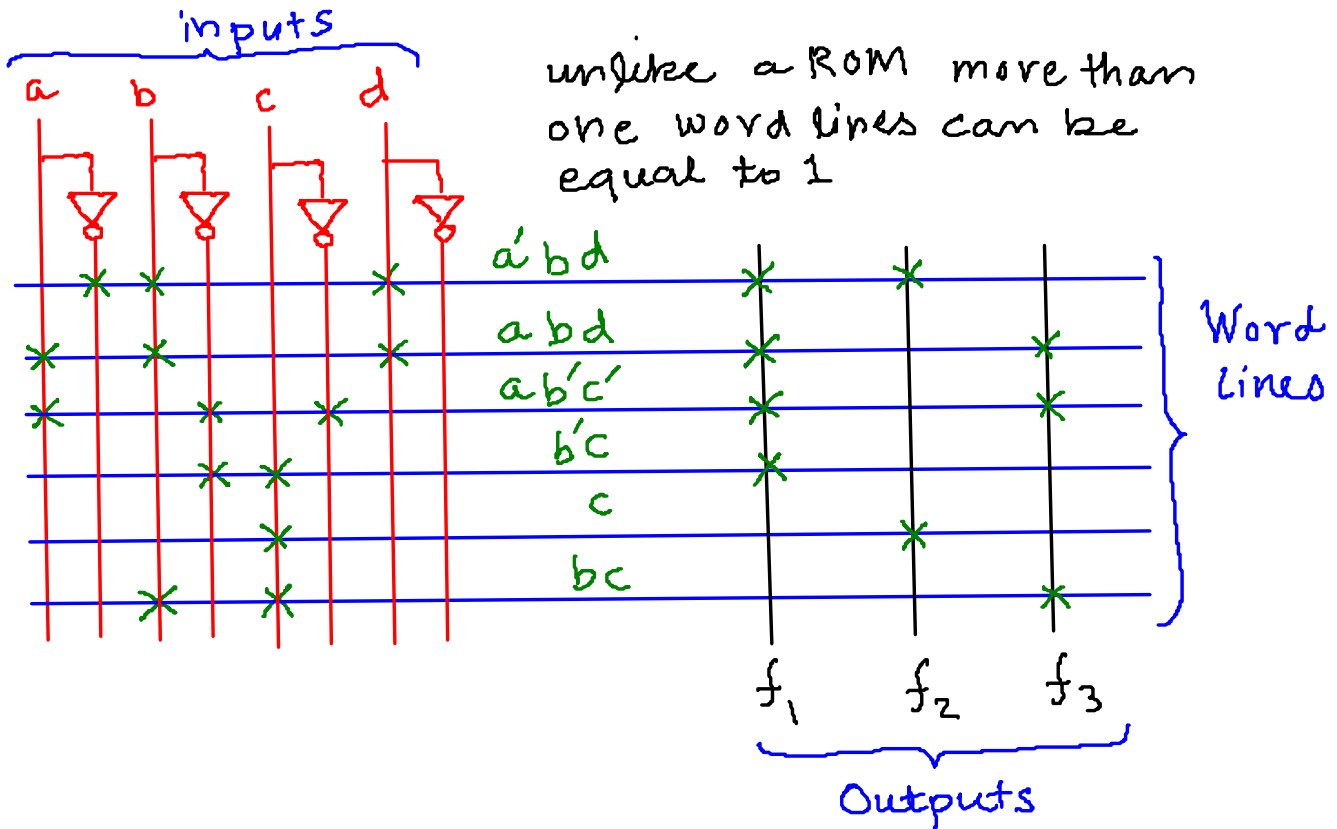 inputs
a b c d
unlike a ROM more than
one word lines can be
equal to 1
a'bd
abd
ab'c'
b'c
c
bc
Word
lines
f₁ f₂ f₃
Outputs